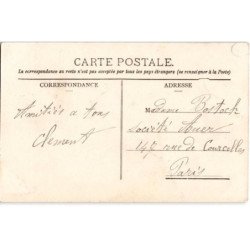 CARTE POSTALE.
La correspondance au recto n'est pas acceptée par tous les pays étrangers (se renseigner à la Poste)
CORRESPONDANCE
ADRESSE
Amitiés a tous
Clement
Madame Bostock
Société
147 rue de Courcelles
Paris